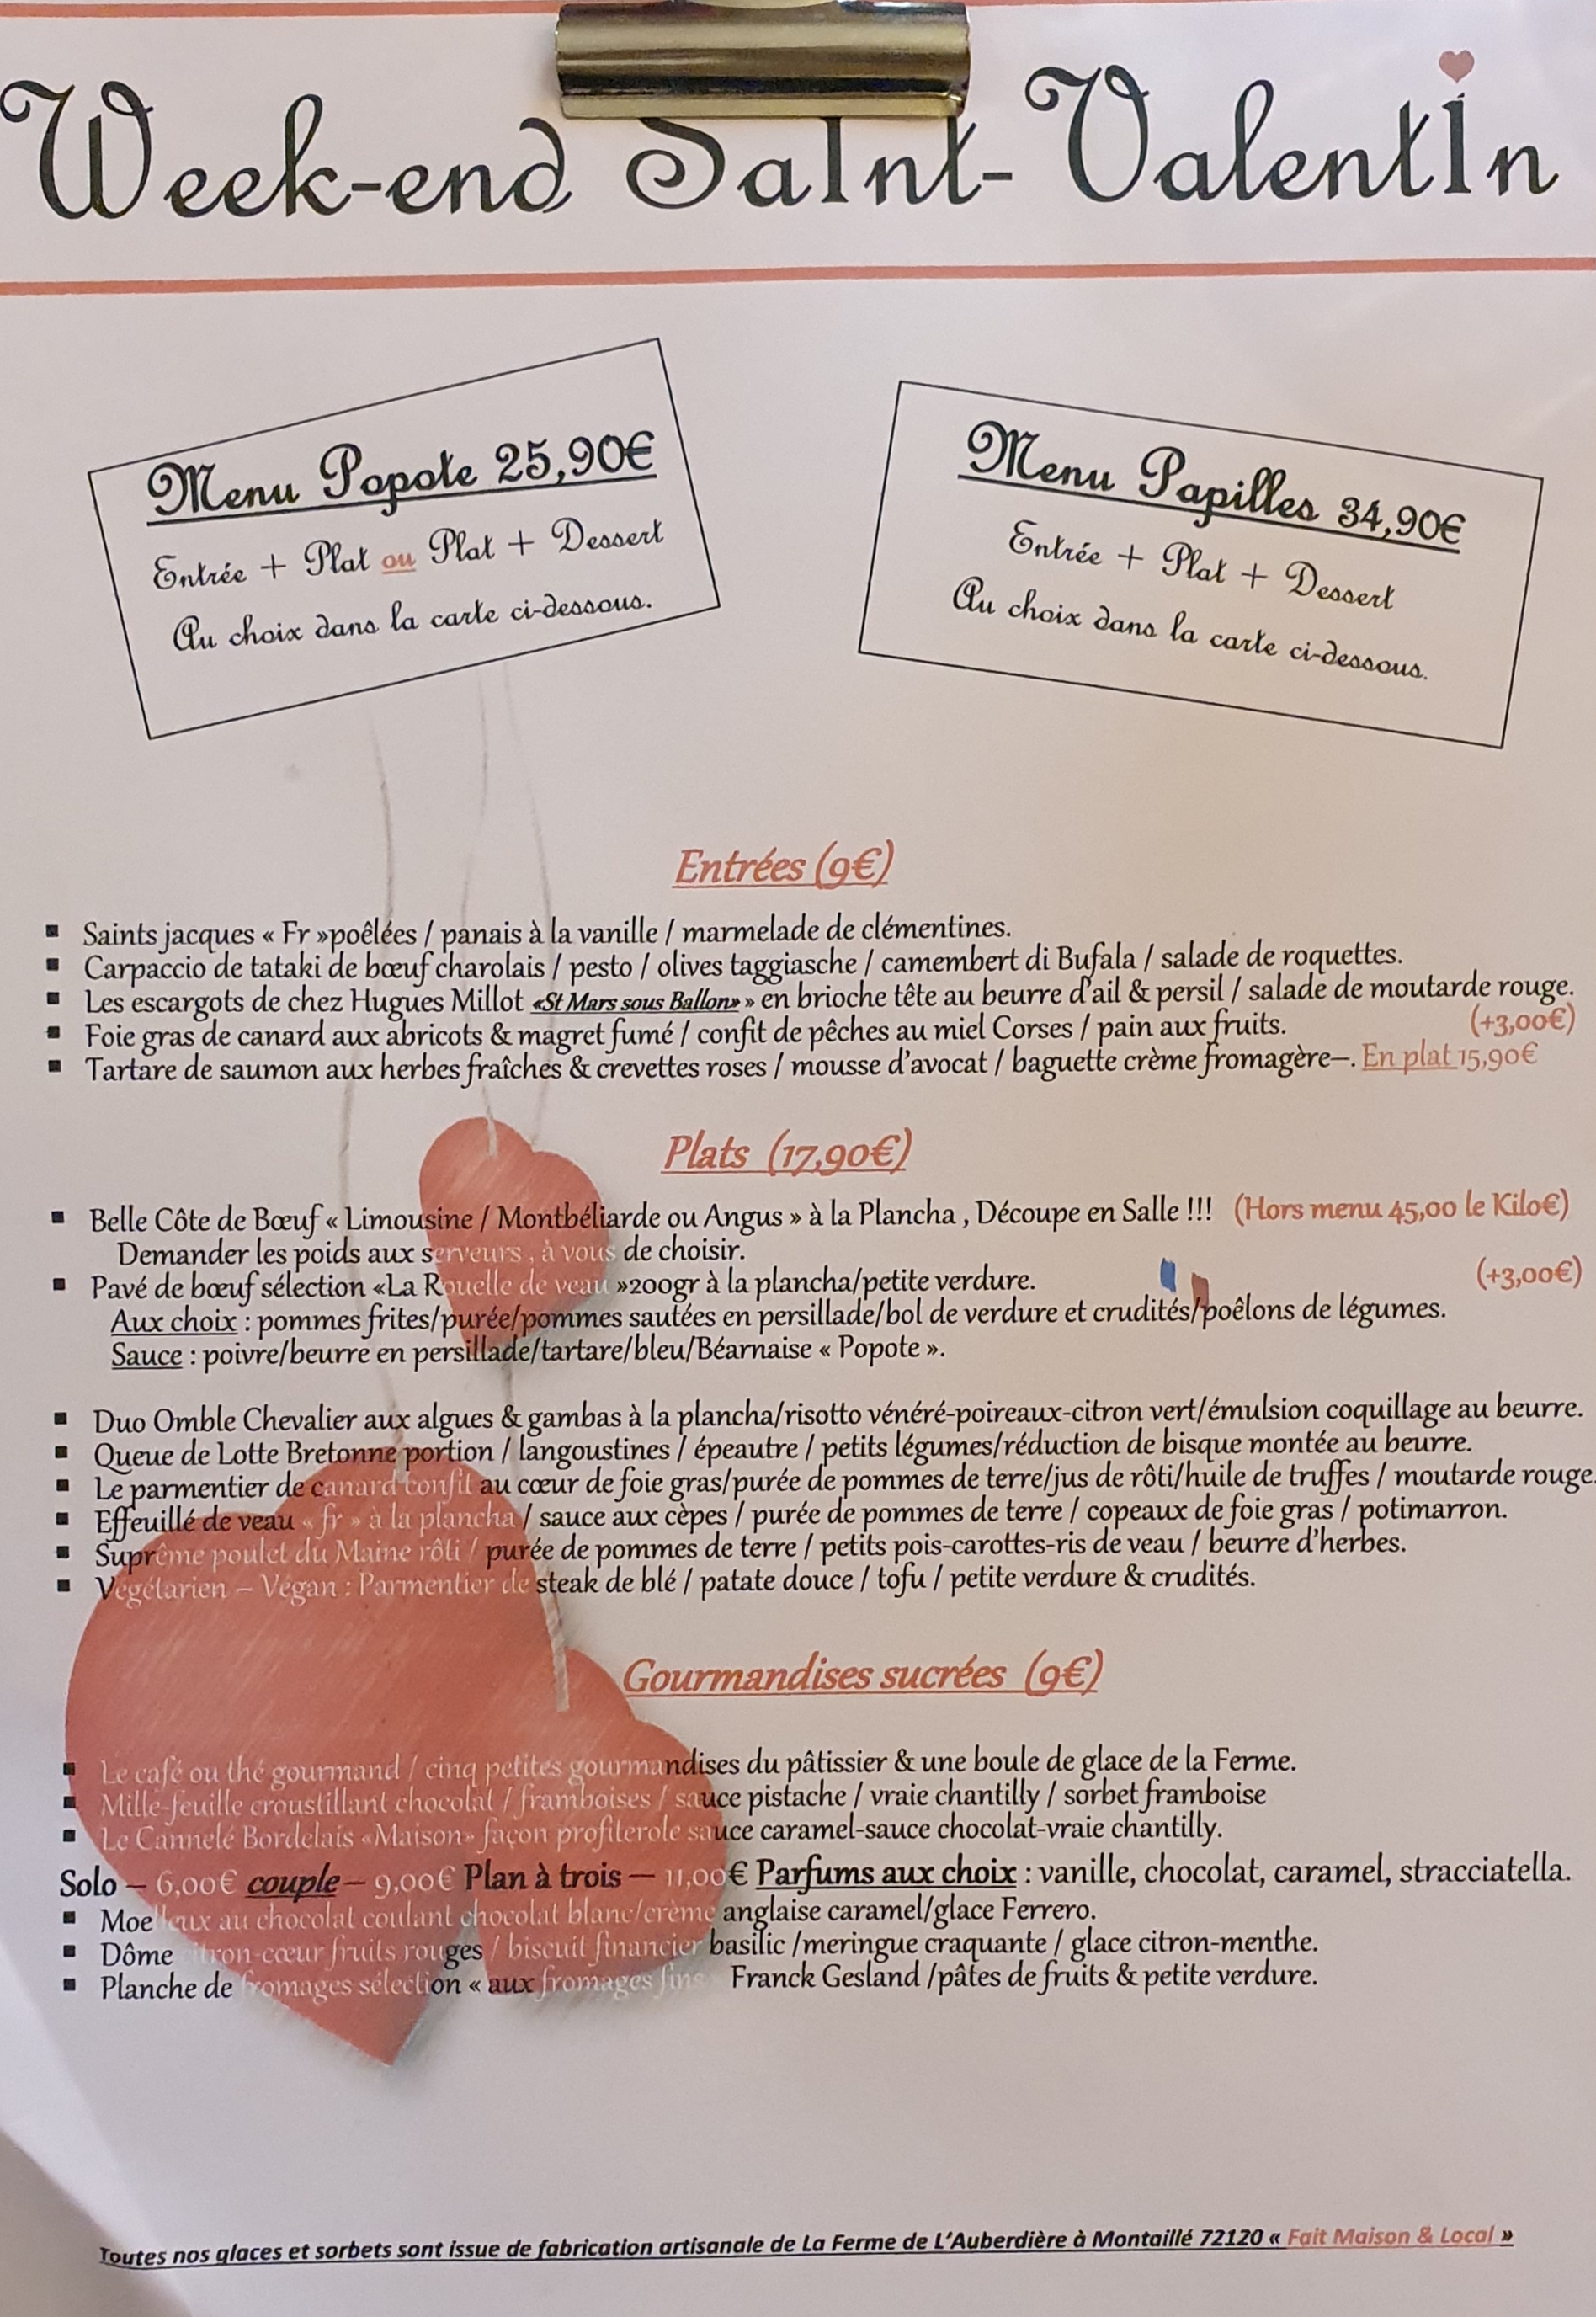 Week-end Saint-Valentin
Menu Popote 25,90€
Entrée + Plat ou Plat + Dessert
Au choix dans la carte ci-dessous.
Menu Papilles 34,90€
Entrée + Plat + Dessert
Au choix dans la carte ci-dessous.
Entrées (9€)
▪ Saints jacques « Fr »poêlées / panais à la vanille / marmelade de clémentines.
▪ Carpaccio de tataki de bœuf charolais / pesto / olives taggiasche / camembert di Bufala / salade de roquettes.
▪ Les escargots de chez Hugues Millot «St Mars sous Ballon» » en brioche tête au beurre d'ail & persil / salade de moutarde rouge.
▪ Foie gras de canard aux abricots & magret fumé / confit de pêches au miel Corses / pain aux fruits. (+3,00€)
▪ Tartare de saumon aux herbes fraîches & crevettes roses / mousse d'avocat / baguette crème fromagère–. En plat 15,90€
Plats (17,90€)
▪ Belle Côte de Bœuf « Limousine / Montbéliarde ou Angus » à la Plancha , Découpe en Salle !!! (Hors menu 45,00 le Kilo€)
Demander les poids aux serveurs , à vous de choisir.
▪ Pavé de bœuf sélection «La Rouelle de veau »200gr à la plancha/petite verdure. (+3,00€)
Aux choix : pommes frites/purée/pommes sautées en persillade/bol de verdure et crudités/poêlons de légumes.
Sauce : poivre/beurre en persillade/tartare/bleu/Béarnaise « Popote ».
▪ Duo Omble Chevalier aux algues & gambas à la plancha/risotto vénéré-poireaux-citron vert/émulsion coquillage au beurre.
▪ Queue de Lotte Bretonne portion / langoustines / épeautre / petits légumes/réduction de bisque montée au beurre.
▪ Le parmentier de canard confit au cœur de foie gras/purée de pommes de terre/jus de rôti/huile de truffes / moutarde rouge.
▪ Effeuillé de veau « fr » à la plancha / sauce aux cèpes / purée de pommes de terre / copeaux de foie gras / potimarron.
▪ Suprême poulet du Maine rôti / purée de pommes de terre / petits pois-carottes-ris de veau / beurre d'herbes.
▪ Végétarien – Végan : Parmentier de steak de blé / patate douce / tofu / petite verdure & crudités.
Gourmandises sucrées (9€)
▪ Le café ou thé gourmand / cinq petites gourmandises du pâtissier & une boule de glace de la Ferme.
▪ Mille-feuille croustillant chocolat / framboises / sauce pistache / vraie chantilly / sorbet framboise
▪ Le Cannelé Bordelais «Maison» façon profiterole sauce caramel-sauce chocolat-vraie chantilly.
Solo – 6,00€ couple – 9,00€ Plan à trois – 11,00€ Parfums aux choix : vanille, chocolat, caramel, stracciatella.
▪ Moelleux au chocolat coulant chocolat blanc/crème anglaise caramel/glace Ferrero.
▪ Dôme citron-cœur fruits rouges / biscuit financier basilic /meringue craquante / glace citron-menthe.
▪ Planche de fromages sélection « aux fromages fins Franck Gesland /pâtes de fruits & petite verdure.
Toutes nos glaces et sorbets sont issue de fabrication artisanale de La Ferme de L'Auberdière à Montaillé 72120 « Fait Maison & Local »